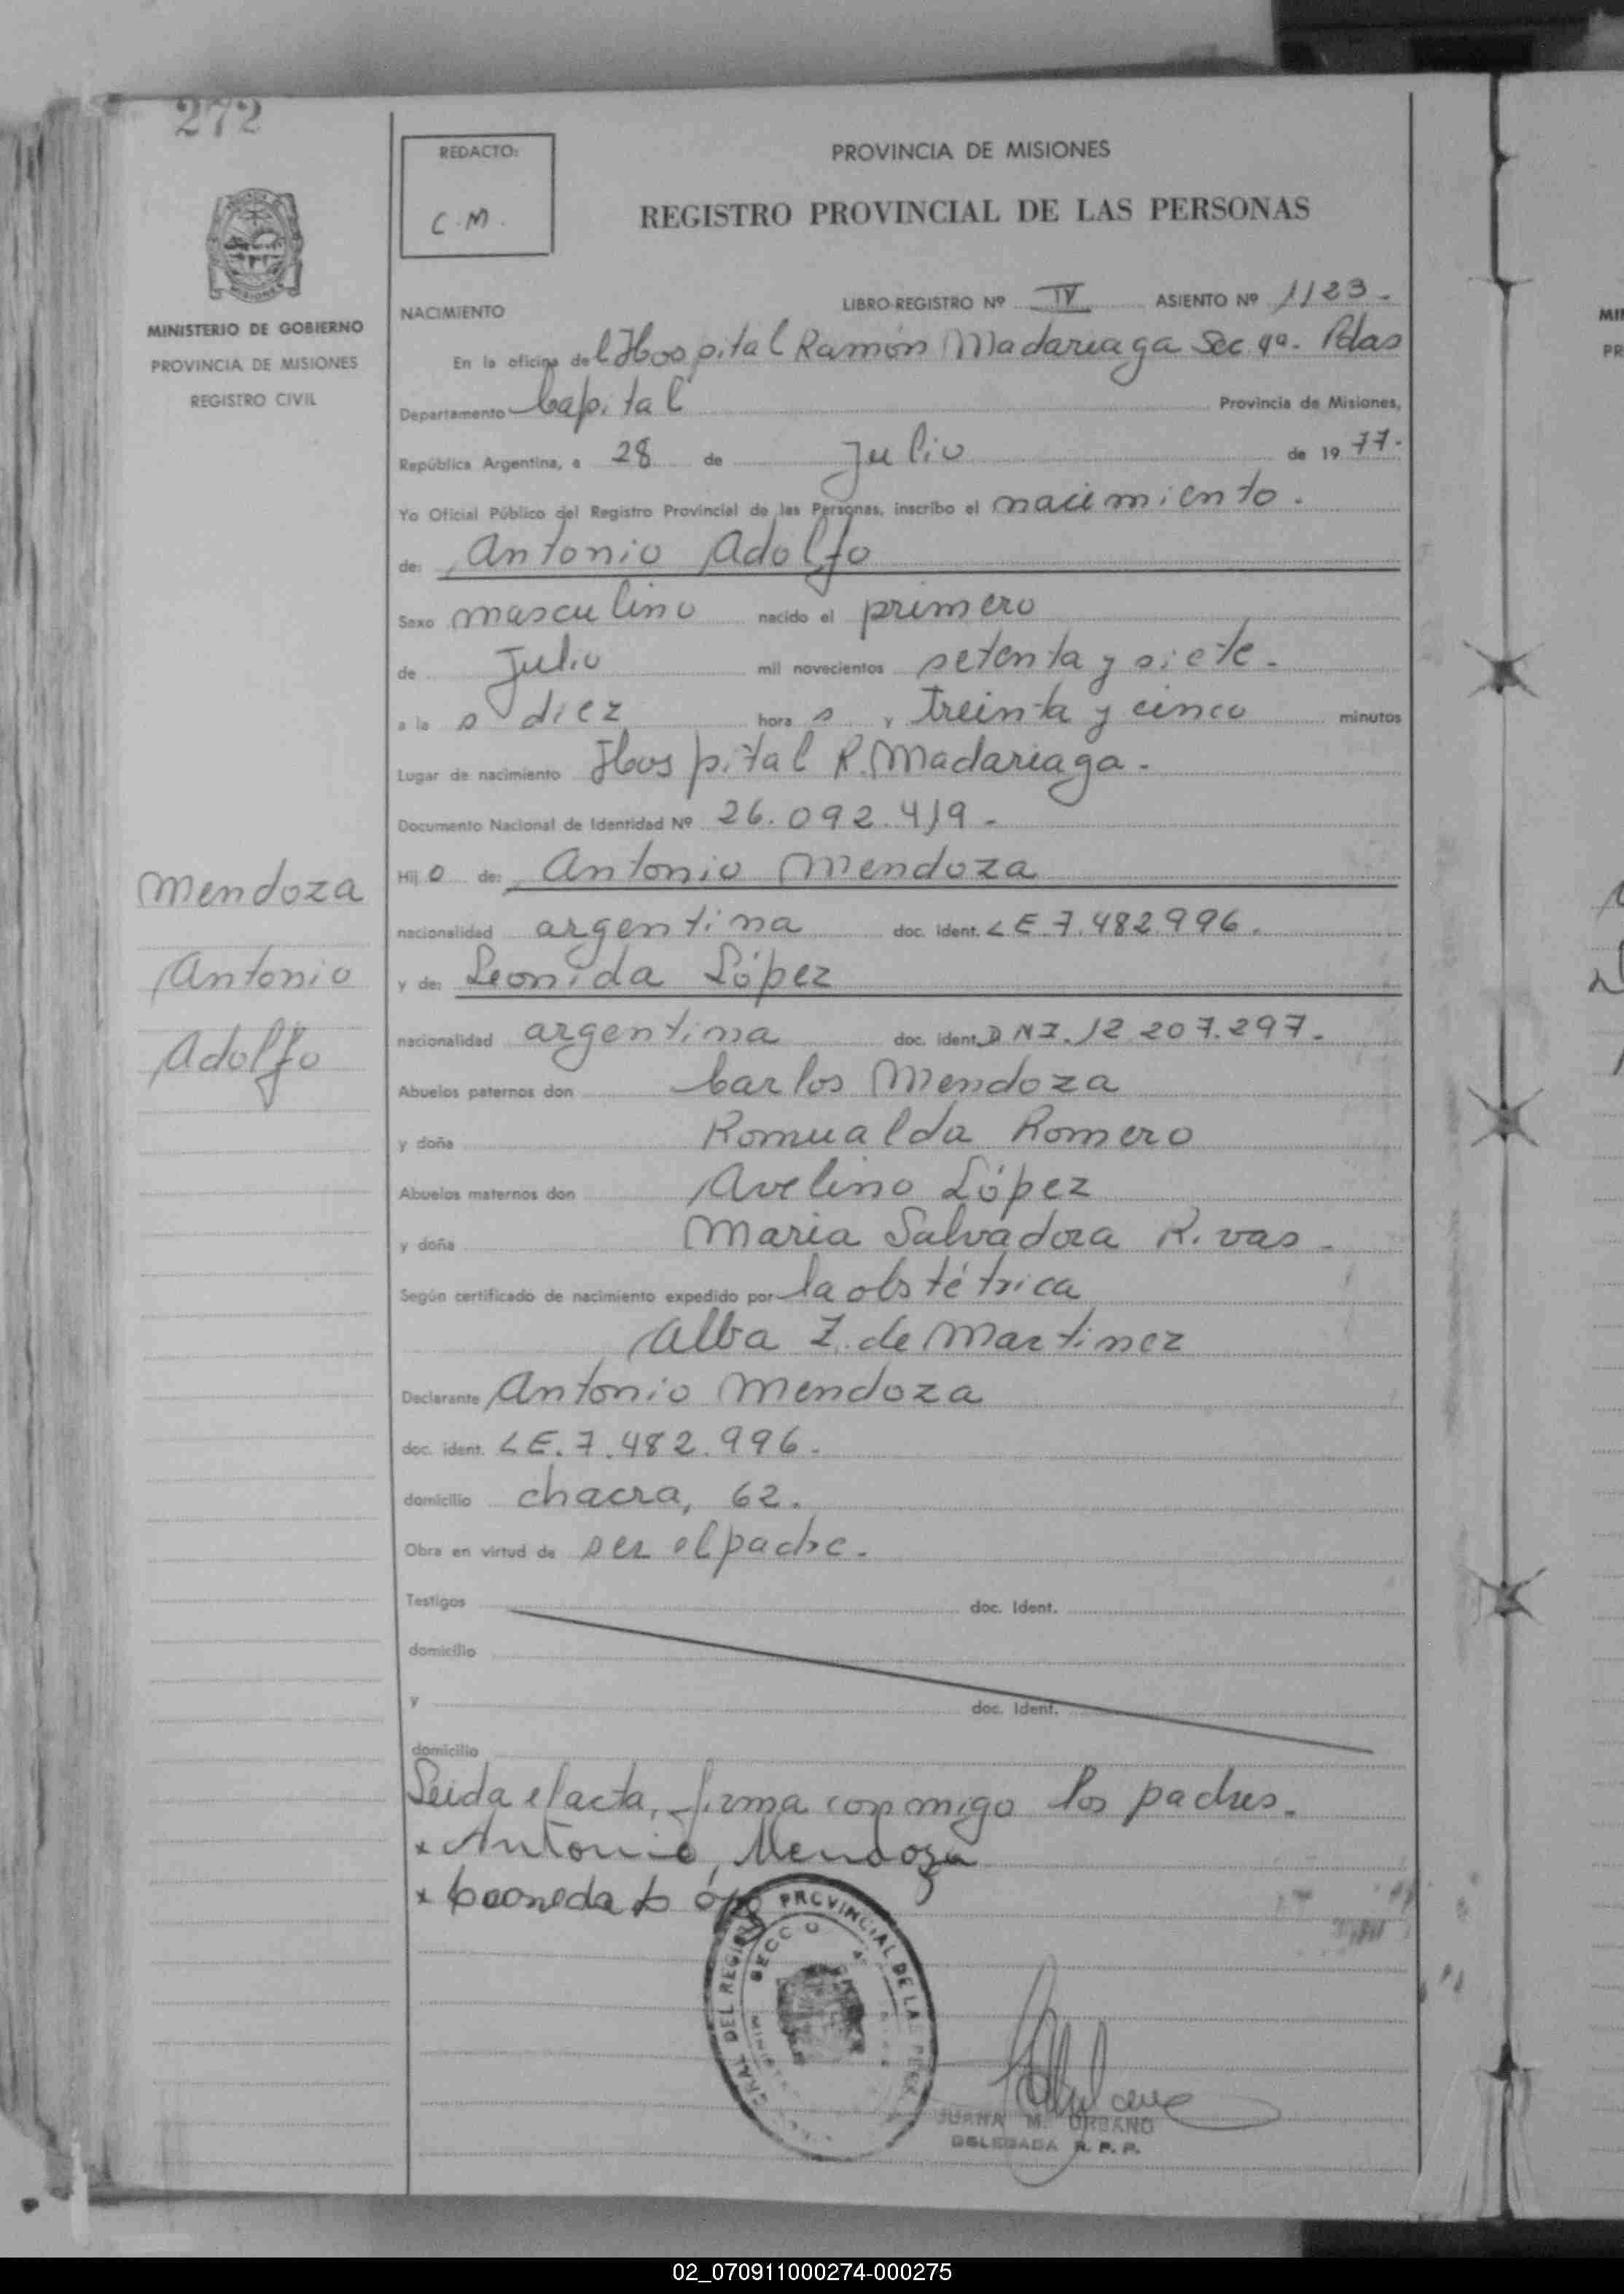 272
REDACTO:
C.M.
PROVINCIA DE MISIONES
REGISTRO PROVINCIAL DE LAS PERSONAS
MINISTERIO DE GOBIERNO
PROVINCIA DE MISIONES
REGISTRO CIVIL
NACIMIENTO LIBRO-REGISTRO Nº IV ASIENTO Nº 1123.-
En la oficina del Hospital Ramón Madariaga Sec. 4a. Pdas
Departamento Capital Provincia de Misiones,
República Argentina, a 28 de Julio de 19 77.
Yo Oficial Público del Registro Provincial de las Personas, inscribo el nacimiento.
de: Antonio Adolfo
Sexo masculino nacido el primero
de Julio mil novecientos setenta y siete.
a la s diez hora s y treinta y cinco minutos
Lugar de nacimiento Hospital R. Madariaga.
Documento Nacional de Identidad Nº 26.092.419.-
Mendoza
Antonio
Adolfo
Hij o de: Antonio Mendoza
nacionalidad argentina doc. ident. LE.7.482.996.
y de: Leonida López
nacionalidad argentina doc. ident. DNI.12.207.297.
Abuelos paternos don Carlos Mendoza
y doña Romualda Romero
Abuelos maternos don Avelino López
y doña Maria Salvadora Rivas.
Según certificado de nacimiento expedido por la obstétrica
Alba Z. de Martinez
Declarante Antonio Mendoza
doc. ident. LE.7.482.996.
domicilio chacra, 62.
Obra en virtud de ser el padre.
Testigos doc. Ident.
domicilio
y doc. Ident.
domicilio
Leida el acta, firma conmigo los padres.
x Antonio Mendoza
x López
PROVINCIAL DE LAS
DEL REGISTRO
JUANA M. URBANO
DELEGADA R. P. P.
02_070911000274-000275